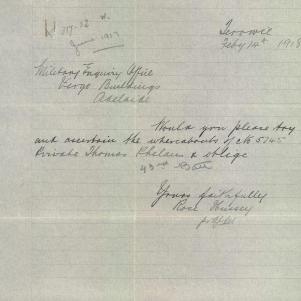 Terowie
Feby 14th 1918
Military Enquiry Office
Verge Buildings
Adelaide
Would you please try
and ascertain the whereabouts of No 5745
Private Thomas Phelan & oblige
43rd Batt
Yours faithfully
Rose Hussey